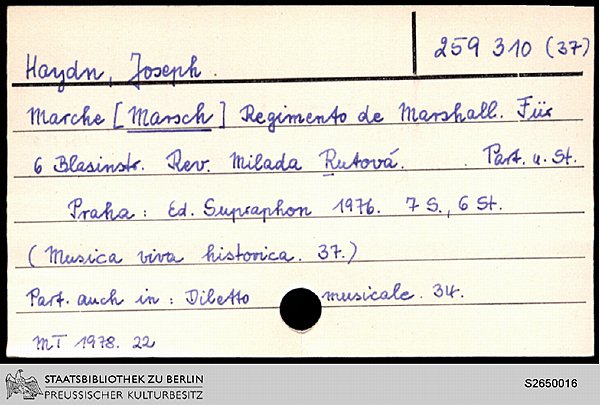 259 310 (37)
Haydn, Joseph.
Marche [Marsch] Regimento de Marshall. Für
6 Blasinstr. Rev. Milada Rutová. Part. u. St.
Praha: Ed. Supraphon 1976. 7 S., 6 St.
(Musica viva historica. 37.)
Part. auch in: Diletto musicale. 34.
MT 1978. 22
STAATSBIBLIOTHEK ZU BERLIN
PREUSSISCHER KULTURBESITZ
S2650016